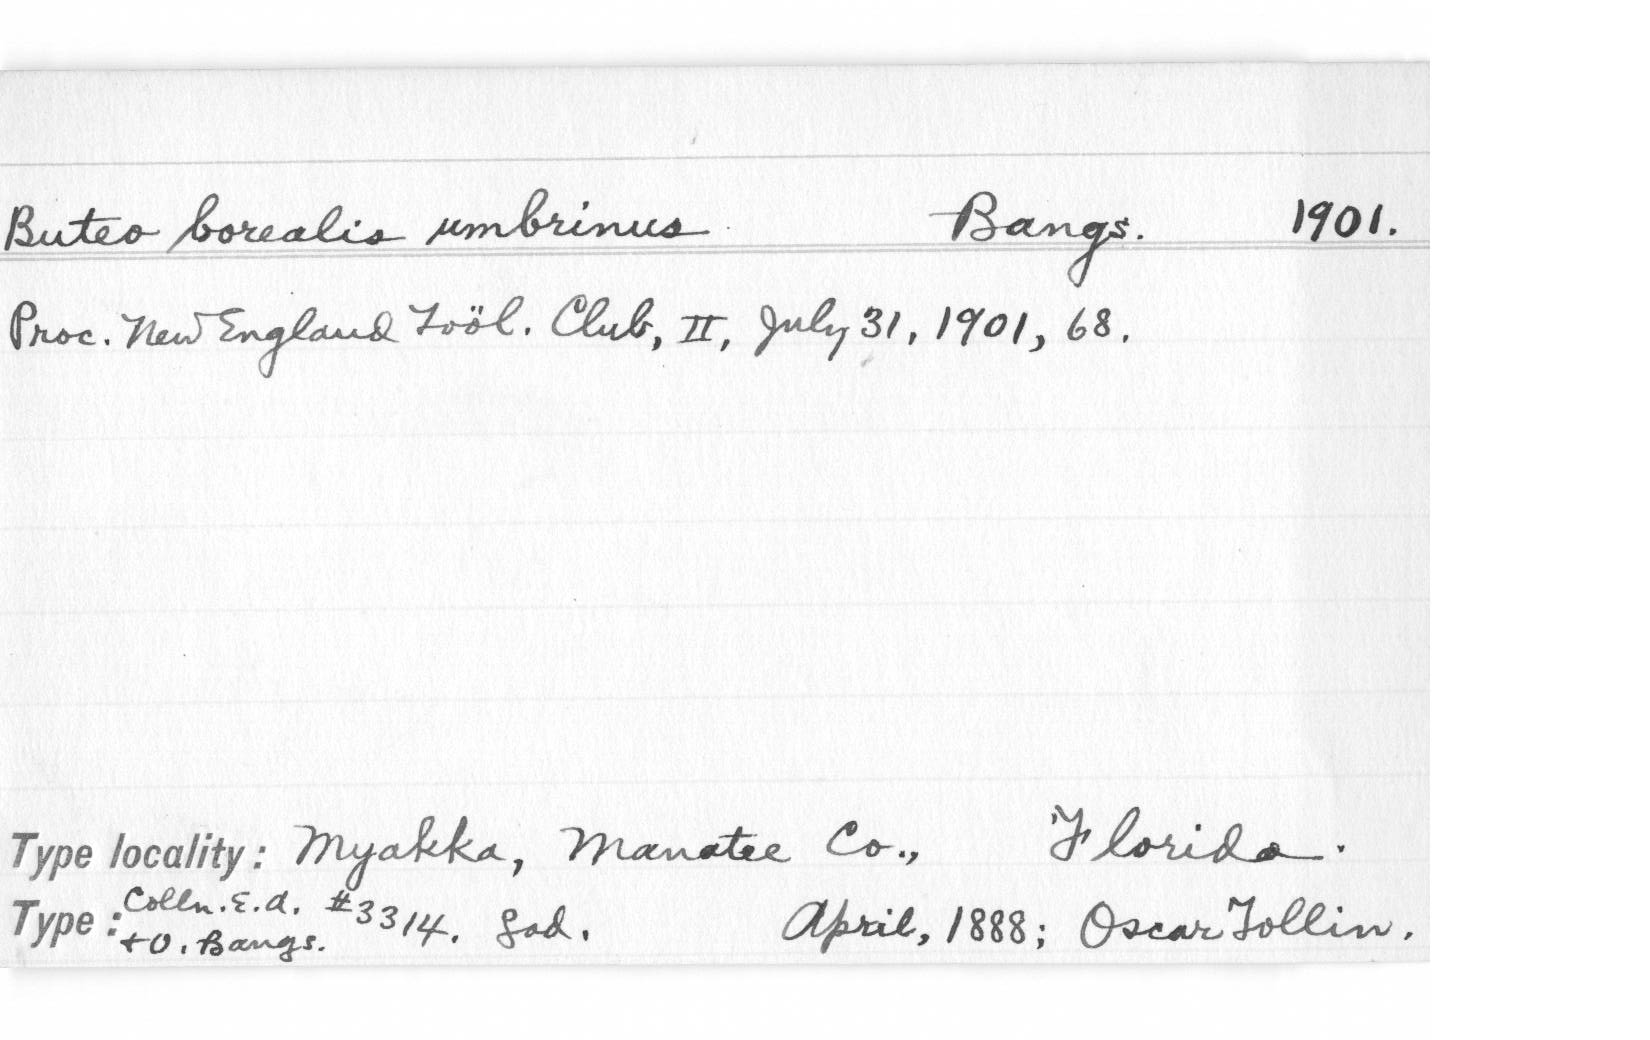 Buteo borealis umbrinus Bangs. 1901.
Proc. New England Zoöl. Club, II, July 31, 1901, 68.
Type locality: Myakka, Manatee Co., Florida.
Type: Colln. E.A. + O. Bangs. #3314. ad. April, 1888; Oscar Tollin.